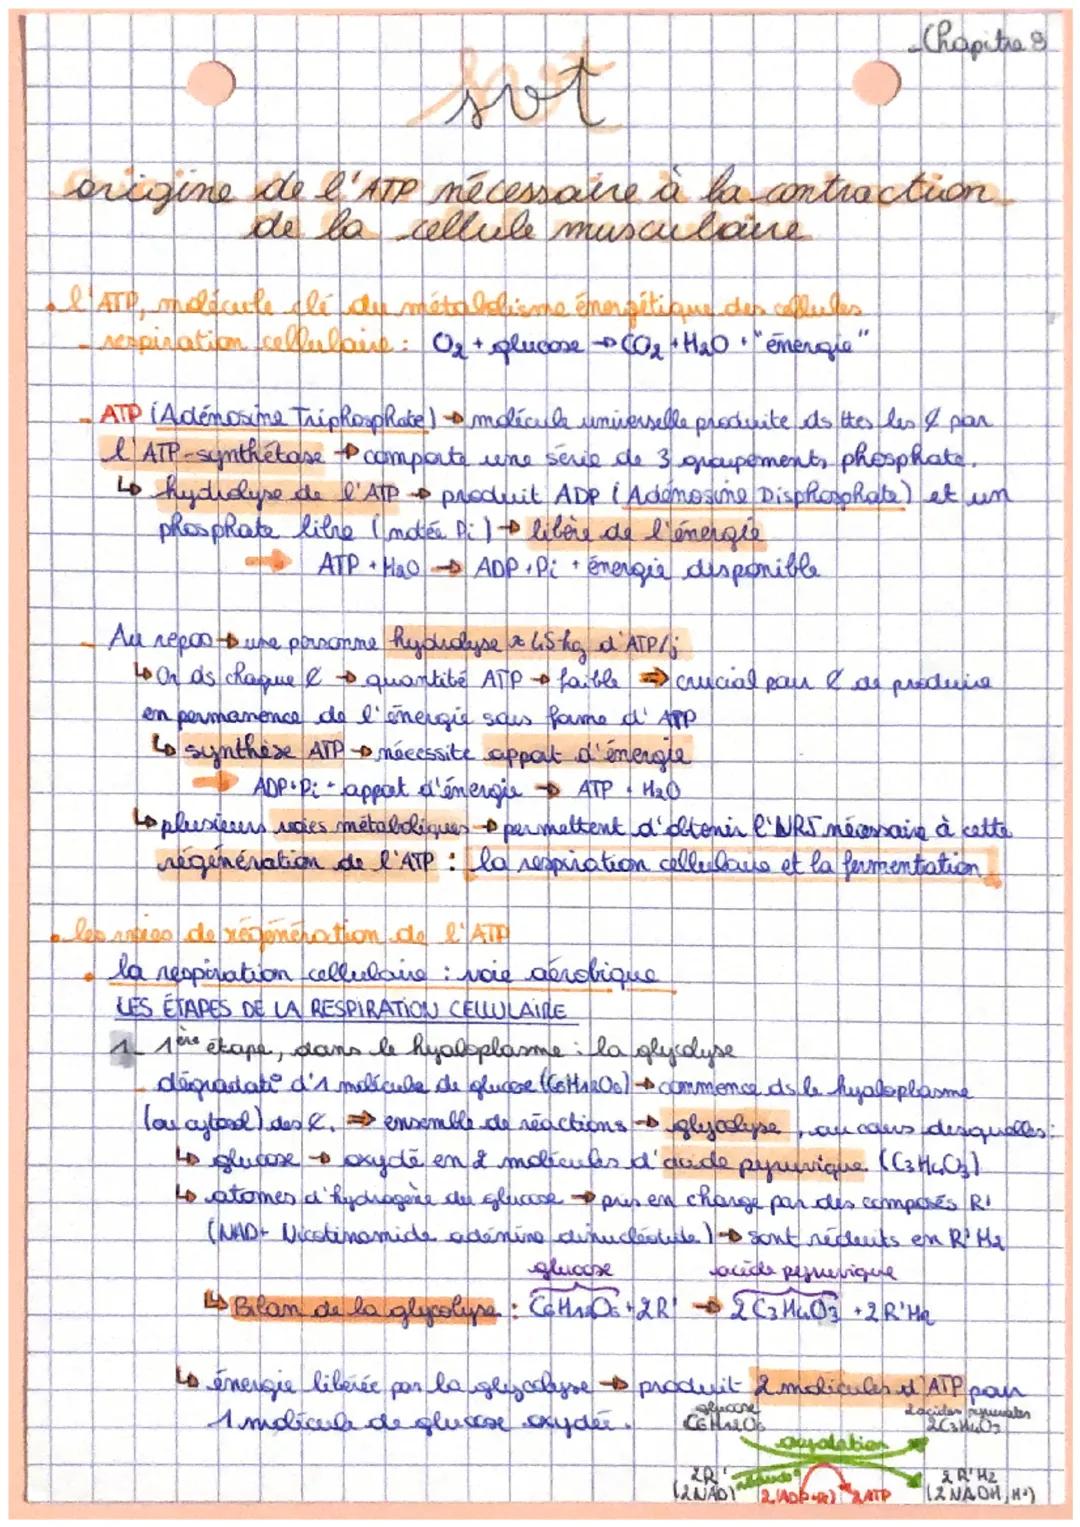 Chapitre 8
svt
origine de l'ATP nécessaire à la contraction
de la cellule musculaire
• l'ATP, molécule clé du métabolisme énergétique des cellules
- respiration cellulaire : O2 + glucose → CO2 + H2O + "énergie"
- ATP (Adénosine Triphosphate) → molécule universelle produite ds ttes les ₵ par
l'ATP-synthétase → comporte une série de 3 groupements phosphate.
↳ hydrolyse de l'ATP → produit ADP (Adénosine Disphosphate) et un
phosphate libre (notée Pi) → libère de l'énergie
→ ATP + H2O → ADP + Pi + énergie disponible
- Au repos → une personne hydrolyse ≈ 45 kg d'ATP/j
↳ Or ds chaque ₵ → quantité ATP → faible ⇒ crucial pour ₵ de produire
en permanence de l'énergie sous forme d'ATP
↳ synthèse ATP → nécessite apport d'énergie
→ ADP + Pi + apport d'énergie → ATP + H2O
↳ plusieurs voies métaboliques → permettent d'obtenir l'NRJ nécessaire à cette
régénération de l'ATP : la respiration cellulaire et la fermentation
• les voies de régénération de l'ATP
• la respiration cellulaire : voie aérobique
LES ÉTAPES DE LA RESPIRATION CELLULAIRE
1- 1ère étape, dans le hyaloplasme : la glycolyse
- dégradat° d'1 molécule de glucose (C6H12O6) → commence ds le hyaloplasme
(ou cytosol) des ₵. ⇒ ensemble de réactions → glycolyse, au cours desquelles :
↳ glucose → oxydé en 2 molécules d'acide pyruvique (C3H4O3)
↳ atomes d'hydrogène du glucose → pris en charge par des composés R'
(NAD+ Nicotinamide adénine dinucléotide) → sont réduits en R'H2
glucose acide pyruvique
↳ Bilan de la glycolyse : C6H12O6 + 2R' → 2 C3H4O3 + 2R'H2
↳ énergie libérée par la glycolyse → produit 2 molécules d'ATP pour
1 molécule de glucose oxydée.
glucose 2 acides pyruvates
C6H12O6 2C3H4O3
oxydation
2R' 2 R'H2
(2NAD) 2(ADP+Pi) 2ATP (2NADH, H+)